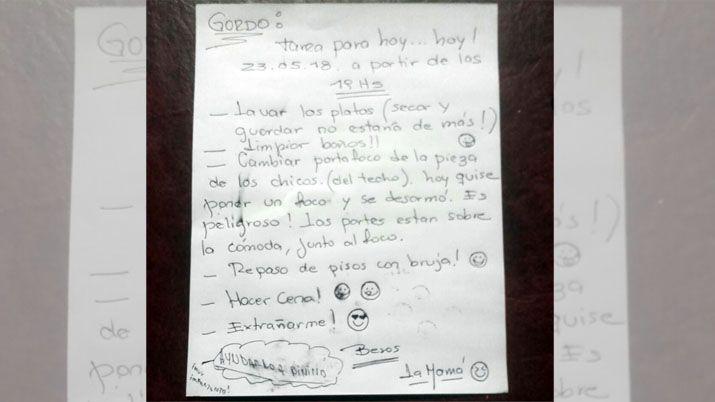 GORDO:
tarea para hoy... hoy!
23.05.18. a partir de las
19 Hs
— Lavar los platos (secar y
guardar no estaría de más!)
— Limpiar baños!!
— Cambiar portafoco de la pieza
de los chicos. (del techo). hoy quise
poner un foco y se desarmó. Es
peligroso! Las partes estan sobre
la cómoda, junto al foco.
— Repaso de pisos con bruja!
— Hacer Cena!
— Extrañarme!
Besos
AYUDARLO A
¡muy importante!
La Mamá